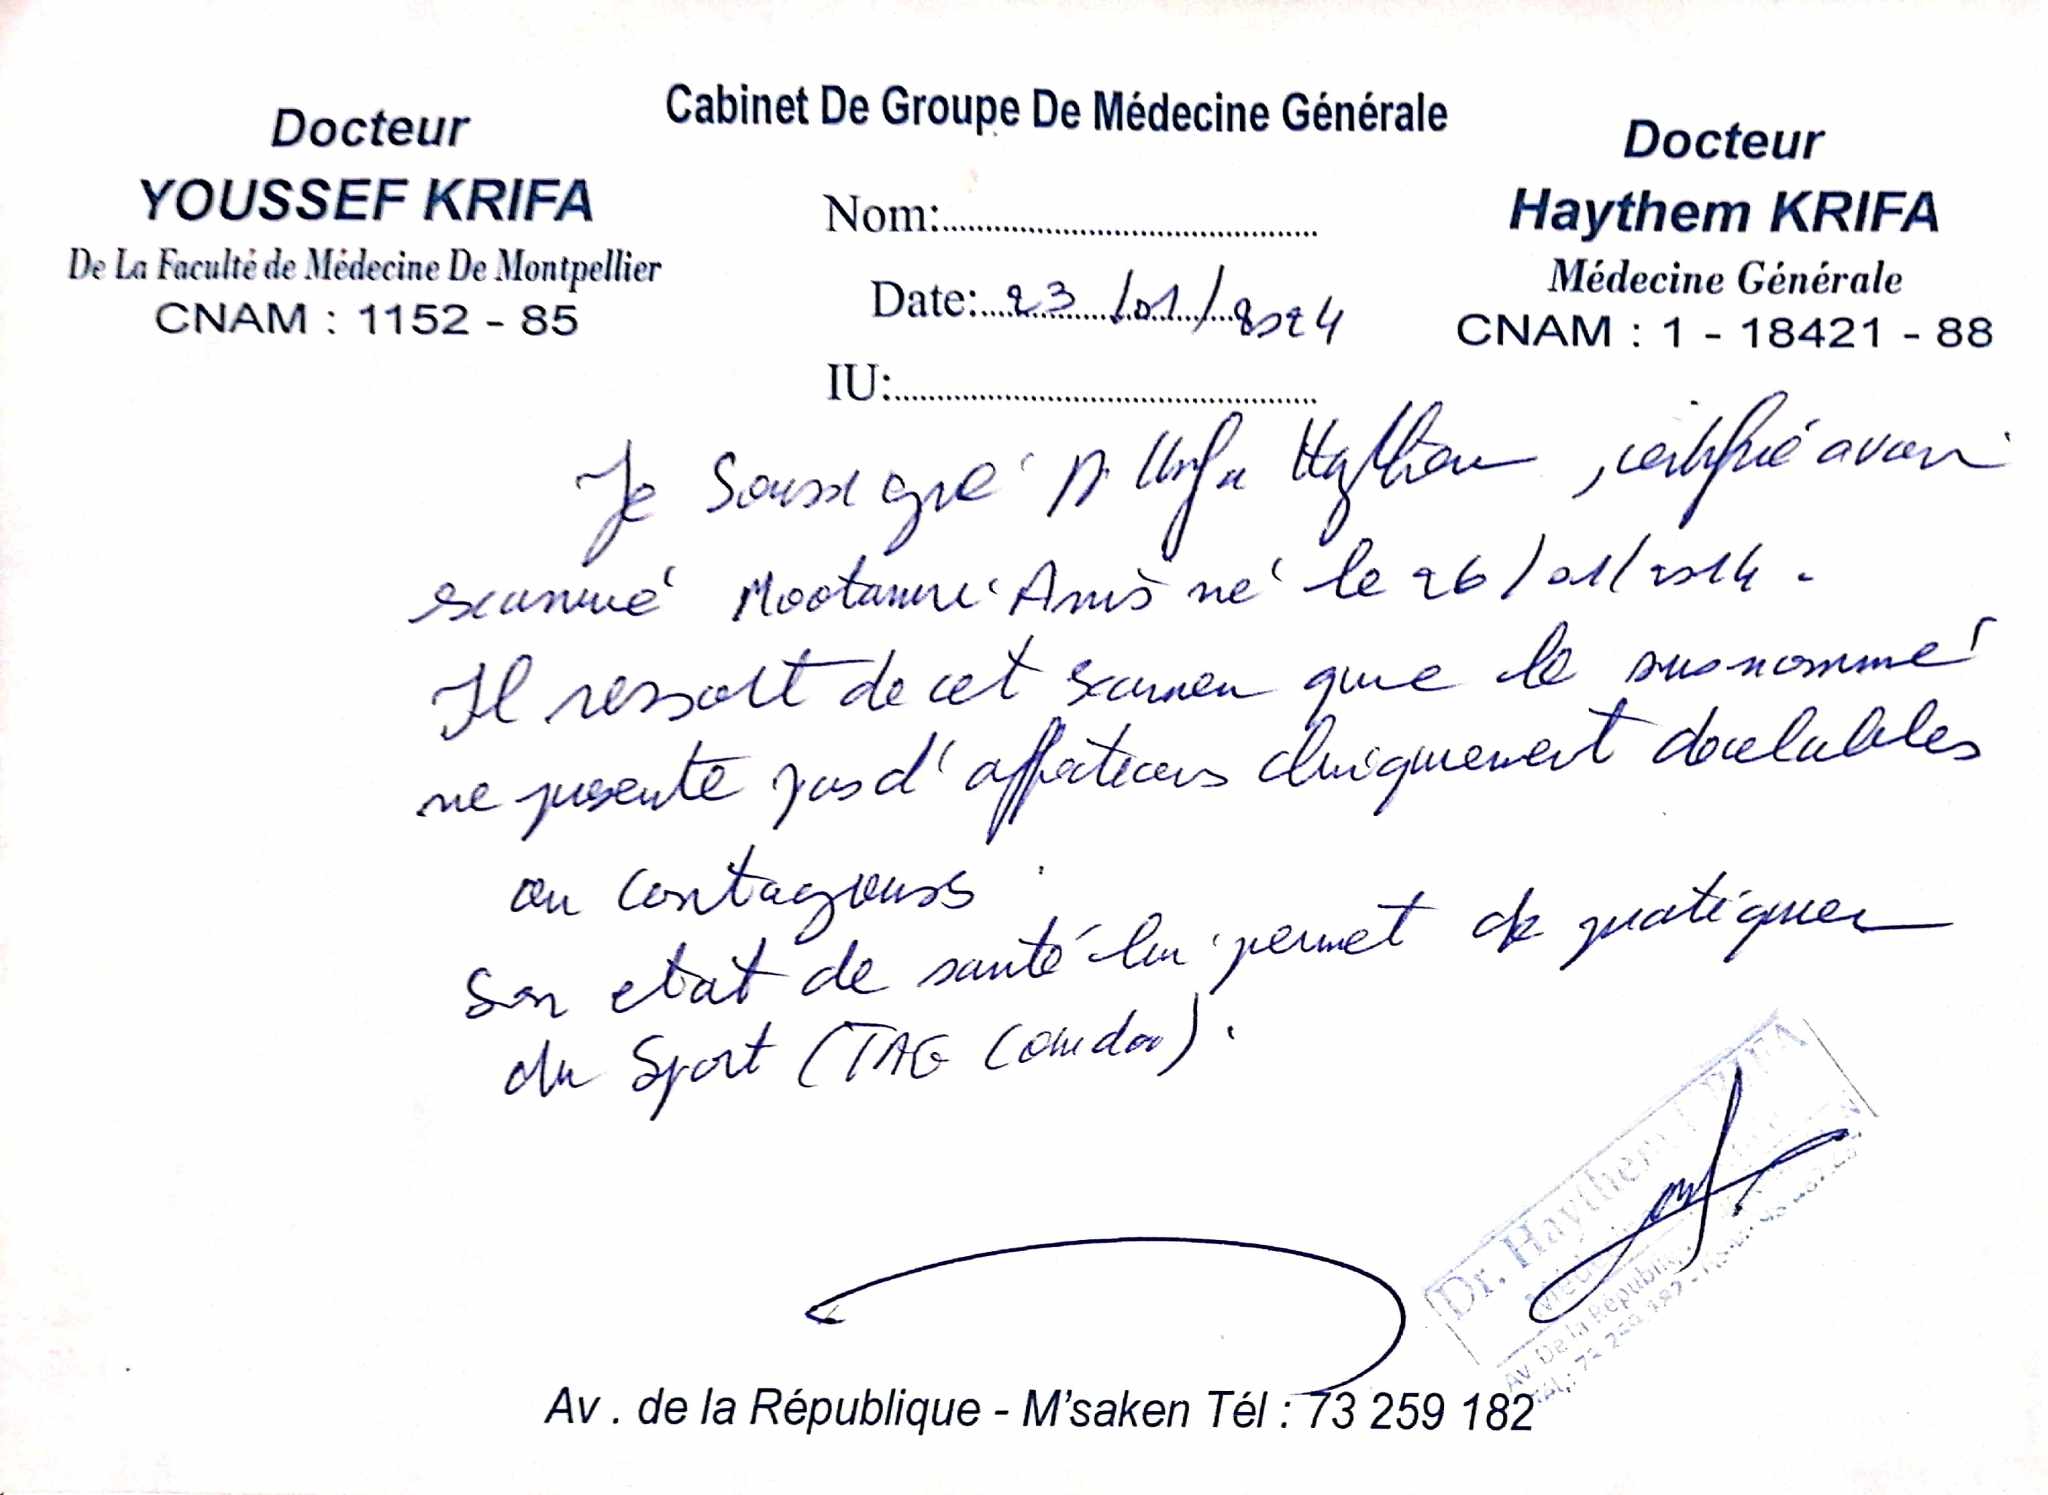 Cabinet De Groupe De Médecine Générale
Docteur
YOUSSEF KRIFA
De La Faculté de Médecine De Montpellier
CNAM : 1152 - 85
Nom:
Date: 23/01/2024
IU:
Docteur
Haythem KRIFA
Médecine Générale
CNAM : 1 - 18421 - 88
Je Soussigné Dr Krifa Haythem, certifié avoir
examiné Mootamri Anis né le 26/01/2014.
Il ressort de cet examen que le susnommé
ne présente pas d'affections cliniquement décelables
ou contagieuses
Son etat de santé lui permet de pratiquer
du Sport (TAG).
Dr. Haythem KRIFA
Av De la République
Av . de la République - M'saken Tél : 73 259 182